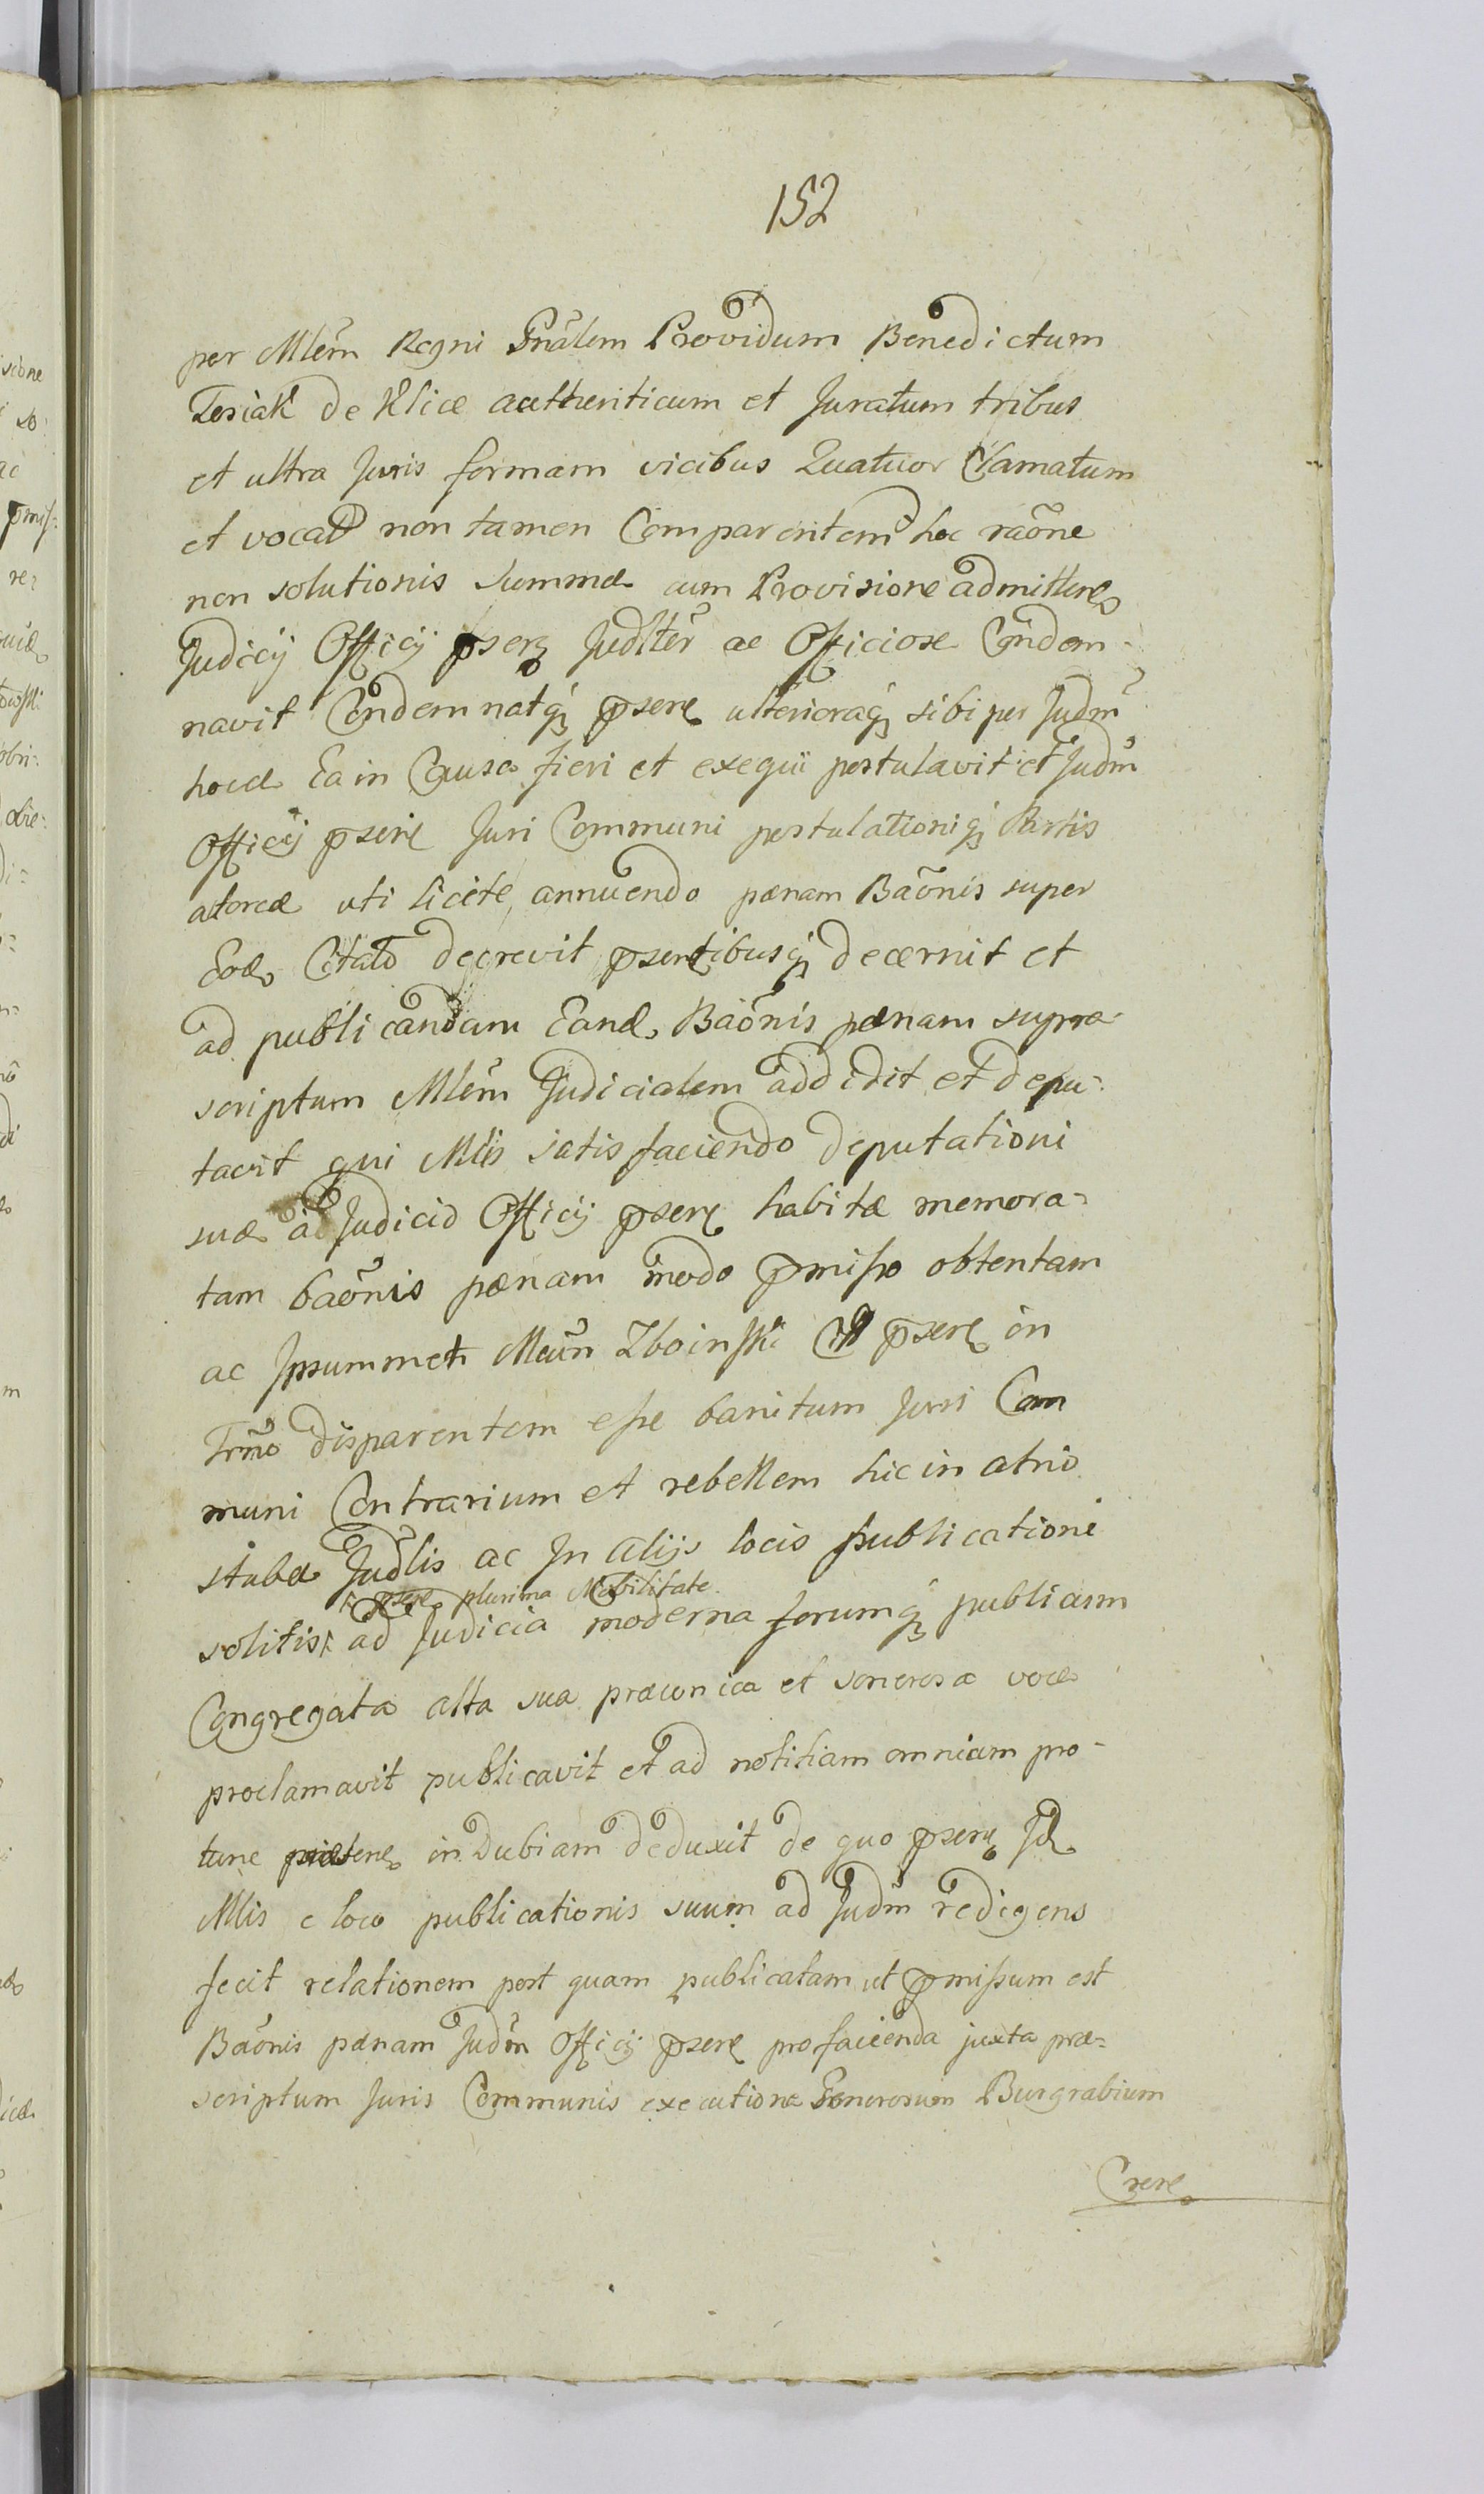 152
per Mlem Regni Gnalem Providum Benedictum
Tesiak de Klice authenticum et Juratum tribus
et ultra Juris formam vicibus Quatuor Clamatum
et vocat non tamen Comparentem hoc raone
non solutionis Summæ cum Provisione admittere
Judicij Officij pserę Judlter ac Officiose Condem-
navit Condemnatq pserę ulterioraq sibi per Judm
hocce Ea in Causa fieri et exequi postulavit et Judm
Officij pserię Juri Communi postulationiq Partis
atoreæ uti licite annuendo pænam Baonis super
Eod Citato decrevit psentibusq decernit et
ad publicandam Eand Baonis pænam supra-
scriptum Mlem Judicialem addidit et depu-
tavit qui Mlis satisfaciendo deputationi
suæ ab Judicio Officij pserę habitæ memora-
tam baonis pænam modo pmisso obtentam
ac Ipsummet Mcum Zboinski pserę in
Trmo disparentem esse banitum Juri Com
muni Contrarium et rebellem hic in atrio
stubæ Judlis ac In alijs locis publicationi
plurima Nobilitate
solitis ad Judicia moderna forumq publicum
Congregata alta sua præconica et sonorosa voce
proclamavit publicavit et ad notitiam omnium pro-
tunc in dubiam deduxit de quo pserę Id
Mlis e loco publicationis suum ad Judm redigens
fecit relationem post quam publicatam ut pmissum est
Baonis pænam Judm Officij pserę pro facienda juxta præ-
scriptum Juris Communis executione Generosum Burgrabium